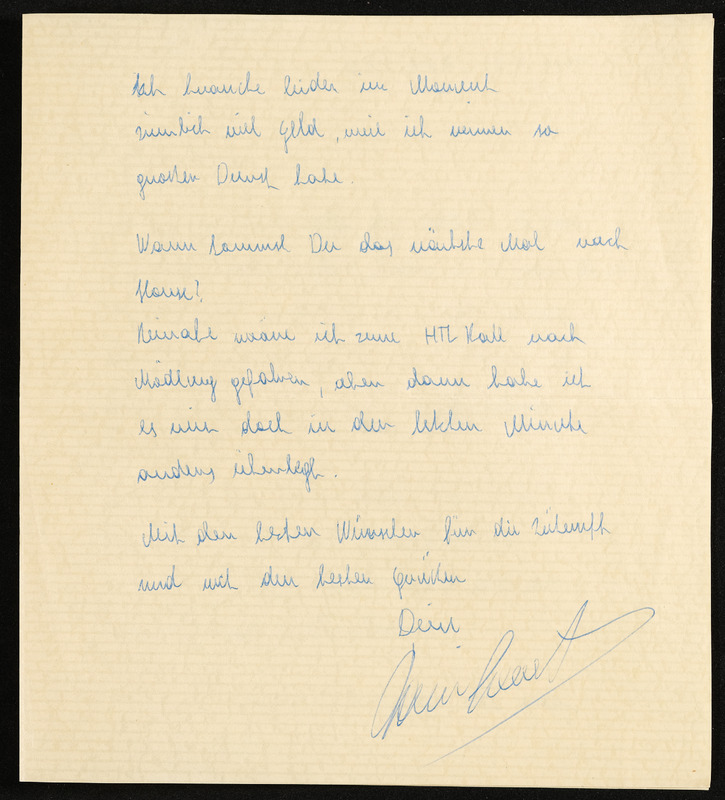 Ich brauche leider im Moment
ziemlich viel Geld, weil ich immer so
großen Durst habe.
Wann kommst Du das nächste Mal nach
Hause?
Beinahe wäre ich zum HTL Ball nach
Mödling gefahren, aber dann habe ich
es mir doch in der letzten Minute
anders überlegt.
Mit den besten Wünschen für die Zukunft
und mit den besten Grüßen
Dein